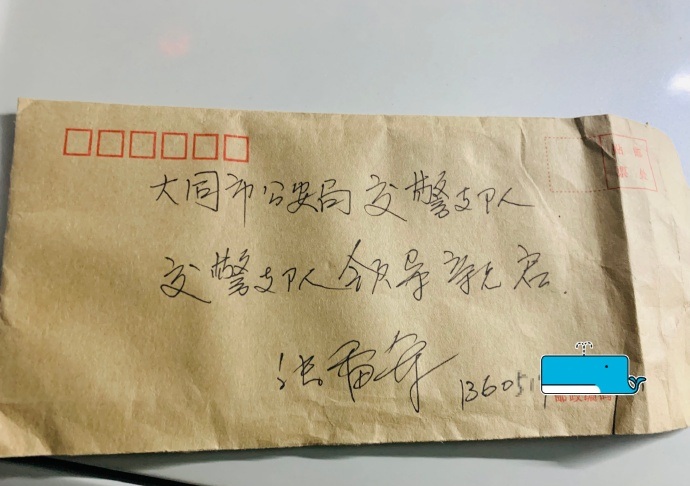 贴 邮
票 处
大同市公安局交警支队
交警支队领导親启.
136051
邮政编码